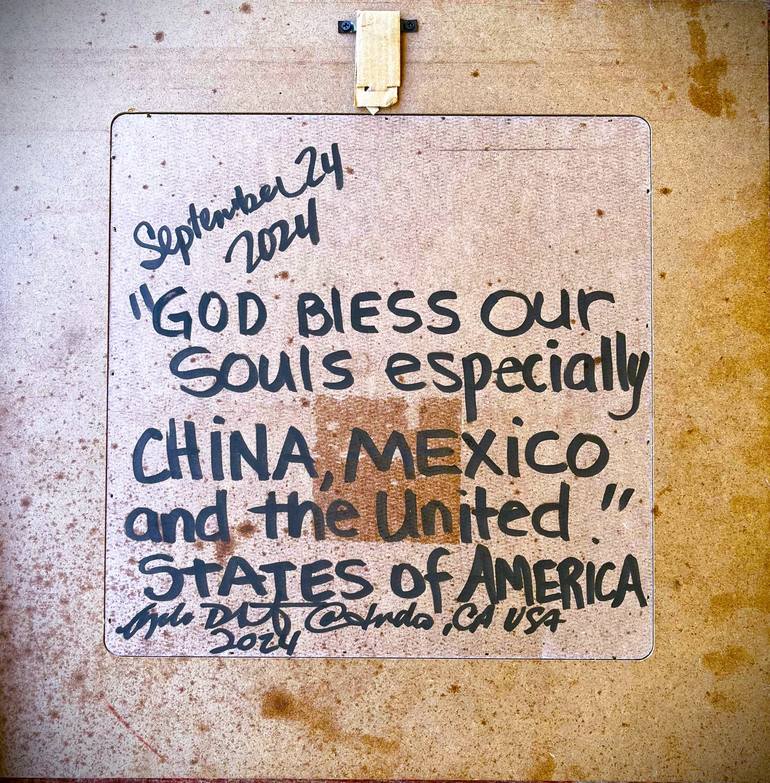 September 24
2024
"GOD BlESS Our
Souls especially
CHiNA, MEXico
and the United."
STATES of AMERICA
@Indio, CA USA
2024